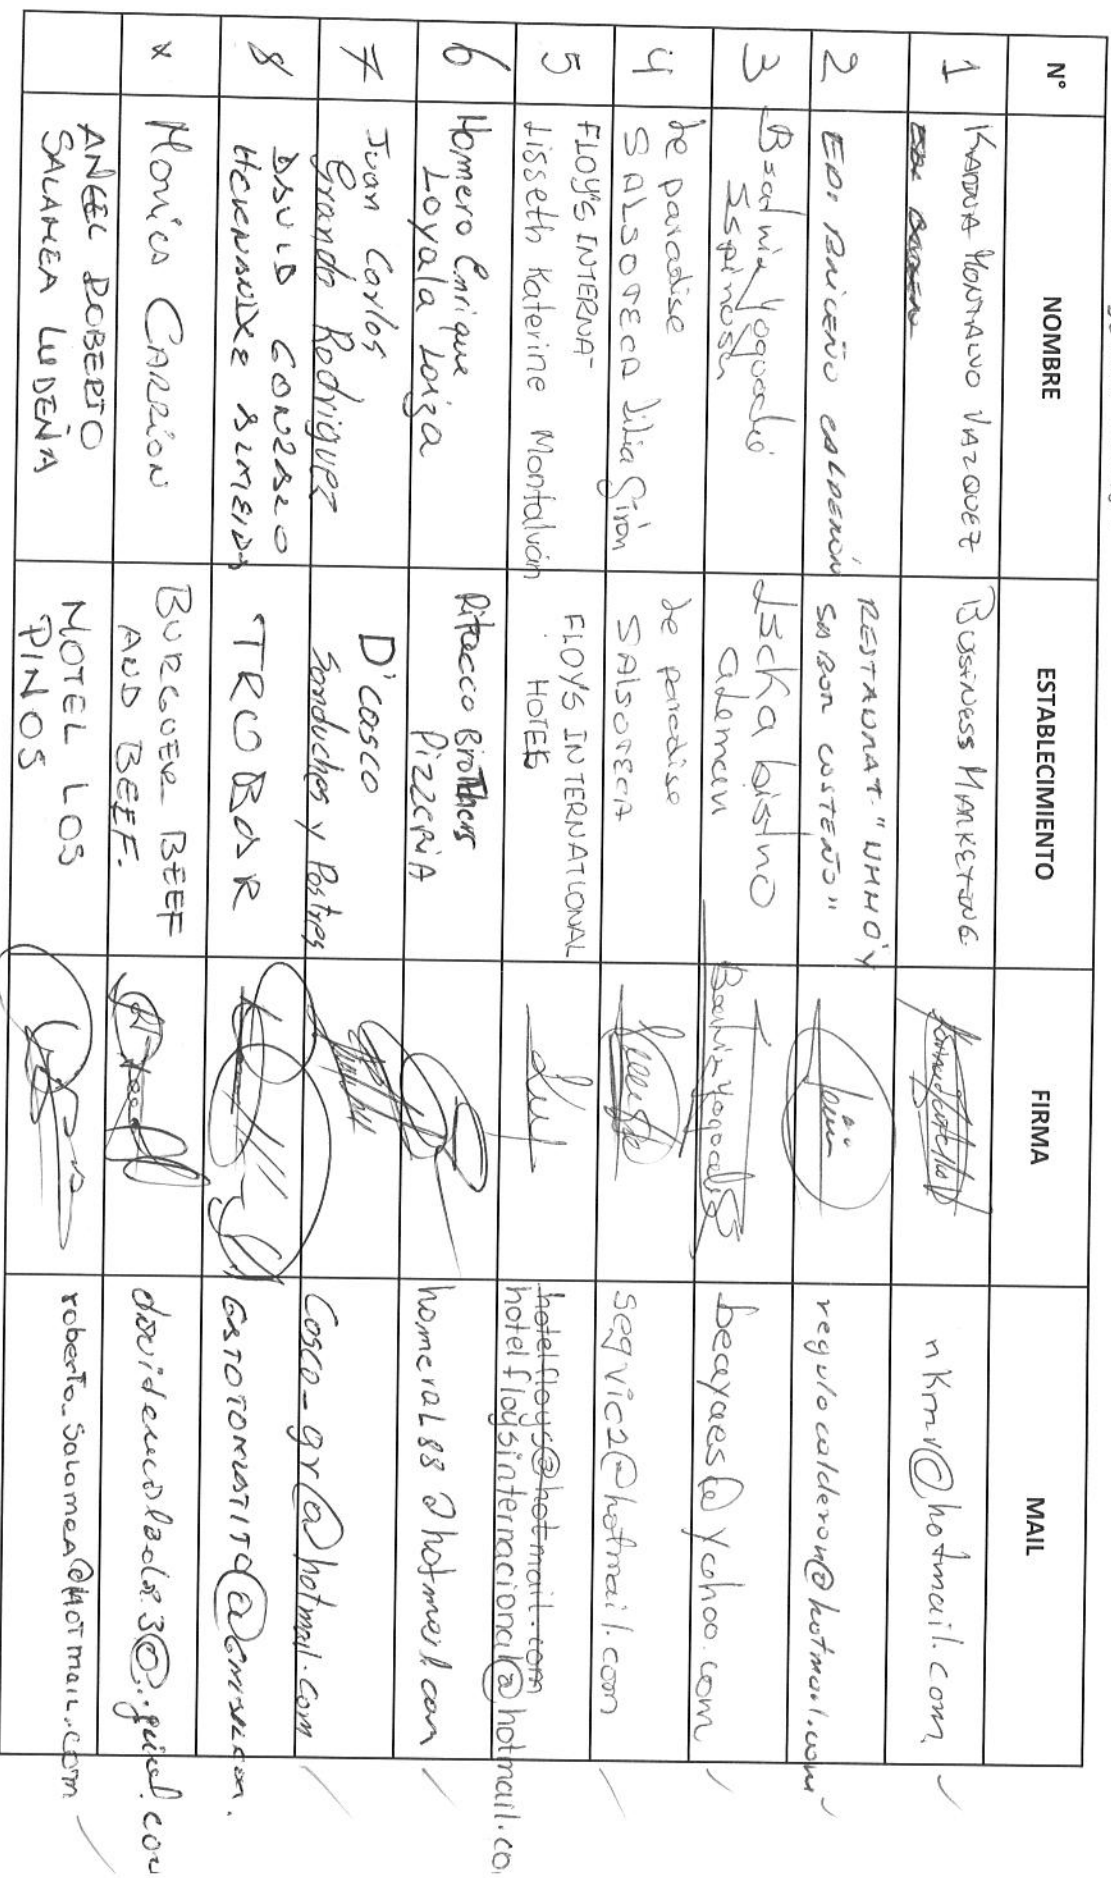 N° NOMBRE ESTABLECIMIENTO FIRMA MAIL
1 KARINA MONTALVO VAZQUEZ BUSINESS MARKETING nkmv@hotmail.com
2 EDI BRICEÑO CALDERÓN RESTAURAT "UHHO'Y
SABOR COSTEÑO" regulocalderon@hotmail.com
3 Beatriz Yaguachi
Espinosa
Alemán beayaes@yahoo.com
4 Le paradise
SALSOTECA Lilia Girón
Le paradise
SALSOTECA segvic2@hotmail.com
5 FLOY'S INTERNA-
Lisseth Katerine Montalván
FLOYS INTERNATIONAL
HOTEL
hotelfloys@hotmail.com
hotelfloysinternacional@hotmail.co
6 Homero Enrique
Loyala Loiza
Ritacco Brothers
Pizzeria
homeral88@hotmail.com
7 Juan Carlos
Granda Rodriguez
D'Cosco
Sanduches y Postres
Cosco-gr@hotmail.com
8 DAVID GONZALO
HERNANDEZ ALMEIDA
TRO BAR
x Monica CARRIÓN
BURGUER BEEF
AND BEEF.
ANGEL ROBERTO
SALAMEA LUDEÑA
MOTEL LOS
PINOS
roberto_salamea@HOTmail.com